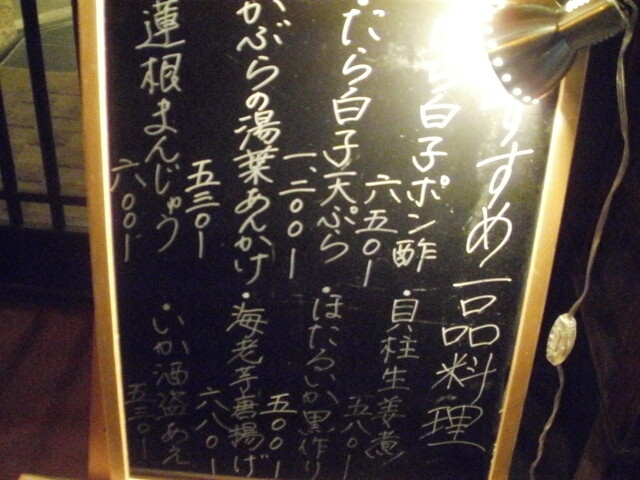 すすめ一品料理
白子ポン酢
六五〇ー
・貝柱生姜煮
五八〇ー
たら白子天ぷら
一、二〇〇ー
・ほたるいか黒作り
五〇〇ー
かぶらの湯葉あんかけ
五三〇ー
・海老芋唐揚げ
六八〇ー
蓮根まんじゅう
六〇〇ー
・いか酒盗あえ
五三〇ー